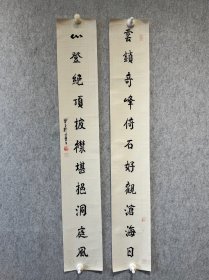 雲鎖奇峰倚石好觀滄海日
心登絕頂披襟堪挹洞庭風